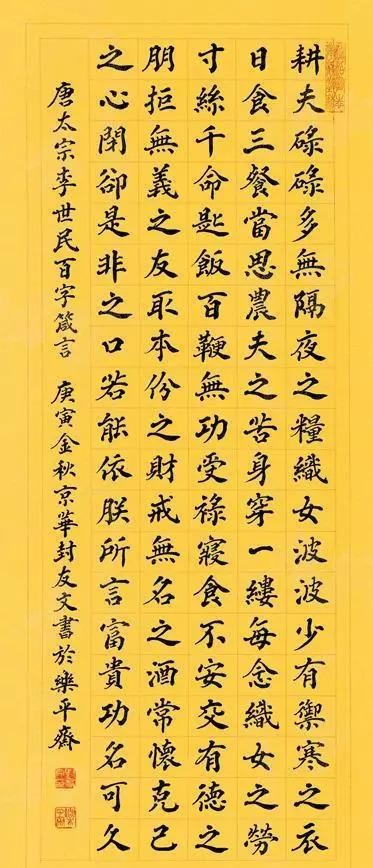 耕夫碌碌多無隔夜之糧織女波波少有禦寒之衣
日食三餐當思農夫之苦身穿一縷每念織女之勞
寸絲千命匙飯百鞭無功受祿寢食不安交有德之
朋拒無義之友取本份之財戒無名之酒常懷克己
之心閉卻是非之口若能依朕所言富貴功名可久
唐太宗李世民百字箴言 庚寅金秋京華封友文書於樂平齋